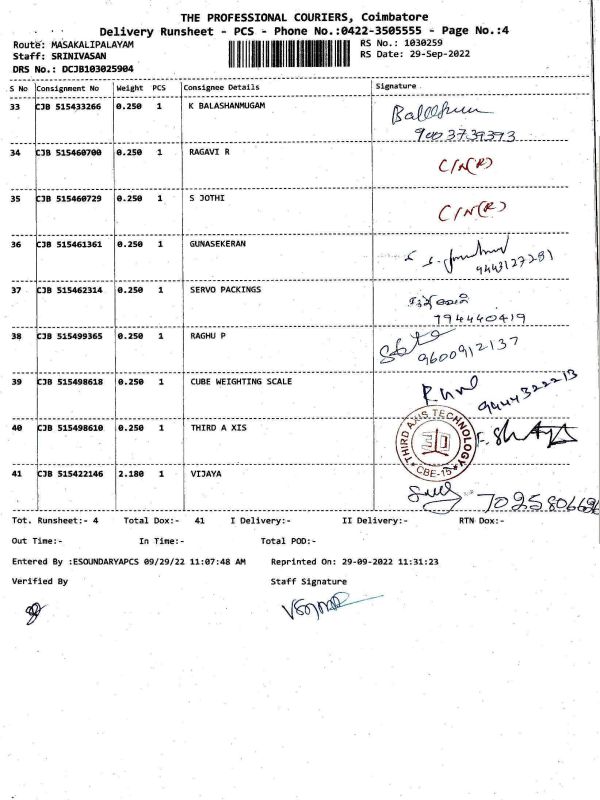 THE PROFESSIONAL COURIERS, Coimbatore
Delivery Runsheet - PCS - Phone No.:0422-3505555 - Page No.:4
Route: MASAKALIPALAYAM RS No.: 1030259
Staff: SRINIVASAN RS Date: 29-Sep-2022
DRS No.: DCJB103025904
S No Consignment No Weight PCS Consignee Details Signature
33 CJB 515433266 0.250 1 K BALASHANMUGAM
34 CJB 515460700 0.250 1 RAGAVI R C/N(R)
35 CJB 515460729 0.250 1 S JOTHI C/N(R)
36 CJB 515461361 0.250 1 GUNASEKERAN
9443127281
37 CJB 515462314 0.250 1 SERVO PACKINGS
794440419
38 CJB 515499365 0.250 1 RAGHU P
9600912137
39 CJB 515498618 0.250 1 CUBE WEIGHTING SCALE
9444322213
40 CJB 515498610 0.250 1 THIRD A XIS
THIRD AXIS TECHNOLOGY
CBE-15
41 CJB 515422146 2.180 1 VIJAYA
Tot. Runsheet:- 4 Total Dox:- 41 I Delivery:- II Delivery:- RTN Dox:-
Out Time:- In Time:- Total POD:-
Entered By :ESOUNDARYAPCS 09/29/22 11:07:48 AM Reprinted On: 29-09-2022 11:31:23
Verified By Staff Signature